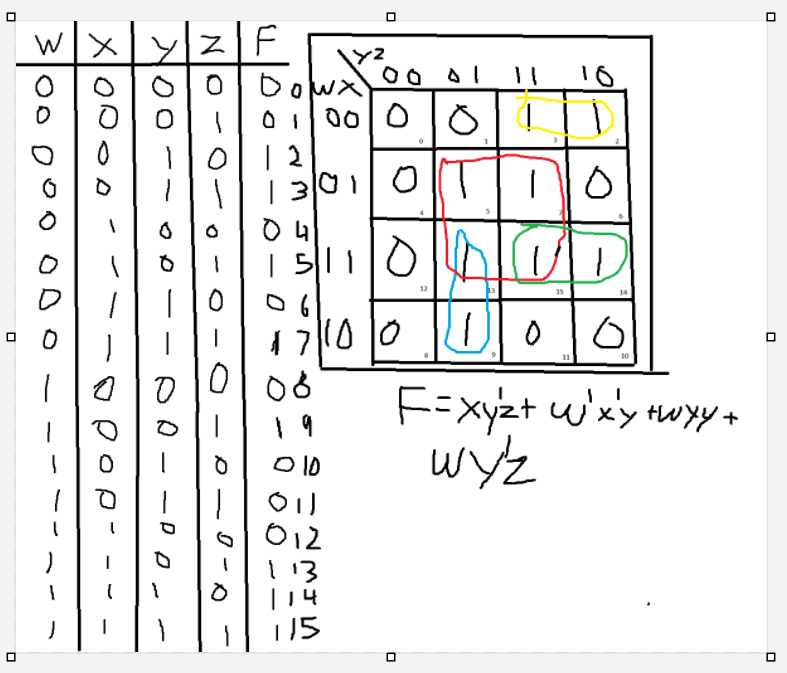 W X Y Z F
0 0 0 0 0 0
0 0 0 1 0 1
0 0 1 0 1 2
0 0 1 1 1 3
0 1 0 0 0 4
0 1 0 1 1 5
0 1 1 0 0 6
0 1 1 1 1 7
1 0 0 0 0 8
1 0 0 1 1 9
1 0 1 0 0 10
1 0 1 1 0 11
1 1 0 0 0 12
1 1 0 1 1 13
1 1 1 0 1 14
1 1 1 1 1 15
YZ
WX 00 01 11 10
00 0 0 1 1
0 1 3 2
01 0 1 1 0
4 5 6
11 0 1 1 1
12 13 15 14
10 0 1 0 0
8 9 11 10
F = xy'z + w'x'y + wxy +
wy'z